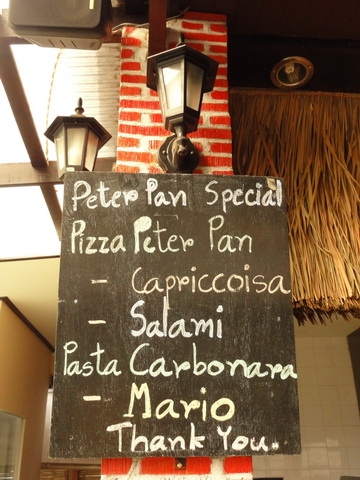 Peter Pan Special
Pizza Peter Pan
- Capriccoisa
- Salami
Pasta Carbonara
- Mario
Thank You.